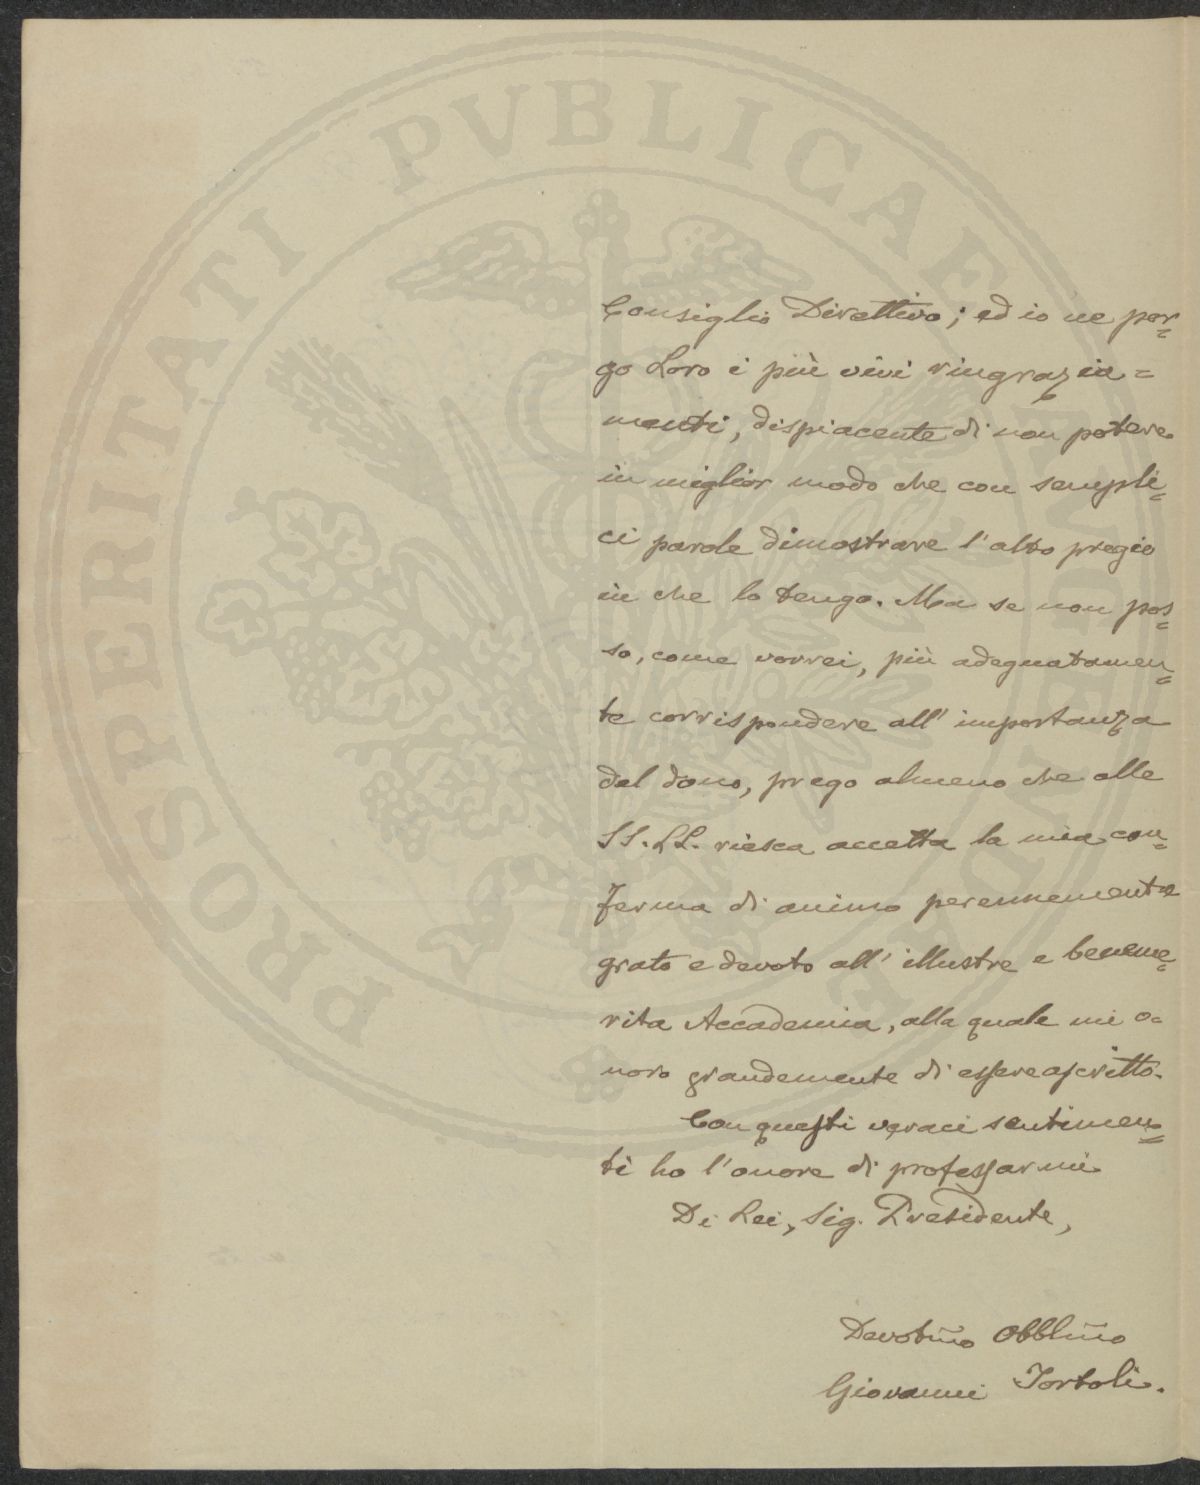 Consiglio Direttivo; ed io ne por=
go Loro i più vivi ringrazia=
menti, dispiacente di non potere
in miglior modo che con sempli=
ci parole dimostrare l'alto pregio
in che lo tengo. Ma se non pos=
so, come vorrei, più adeguatamen=
te corrispondere all'importanza
del dono, prego almeno che alle
SS. LL. riesca accetta la mia con=
ferma di animo perennemente
grato e devoto all'illustre e beneme=
rita Accademia, alla quale mi o=
noro grandemente di essere ascritto.
Con questi veraci sentimen=
ti ho l'onore di professarmi
Di Lei, Sig. Presidente,
Devotm̃o Obblm̃o
Giovanni Tortoli.
PROSPERITATI PVBLICAE AVGENDAE